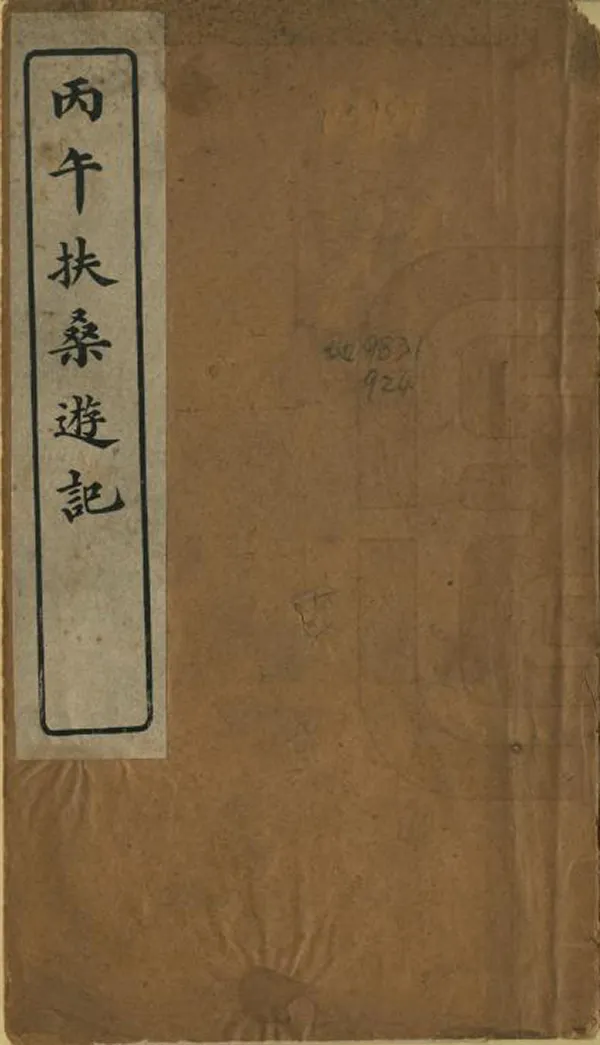 丙午扶桑遊記
9831
924